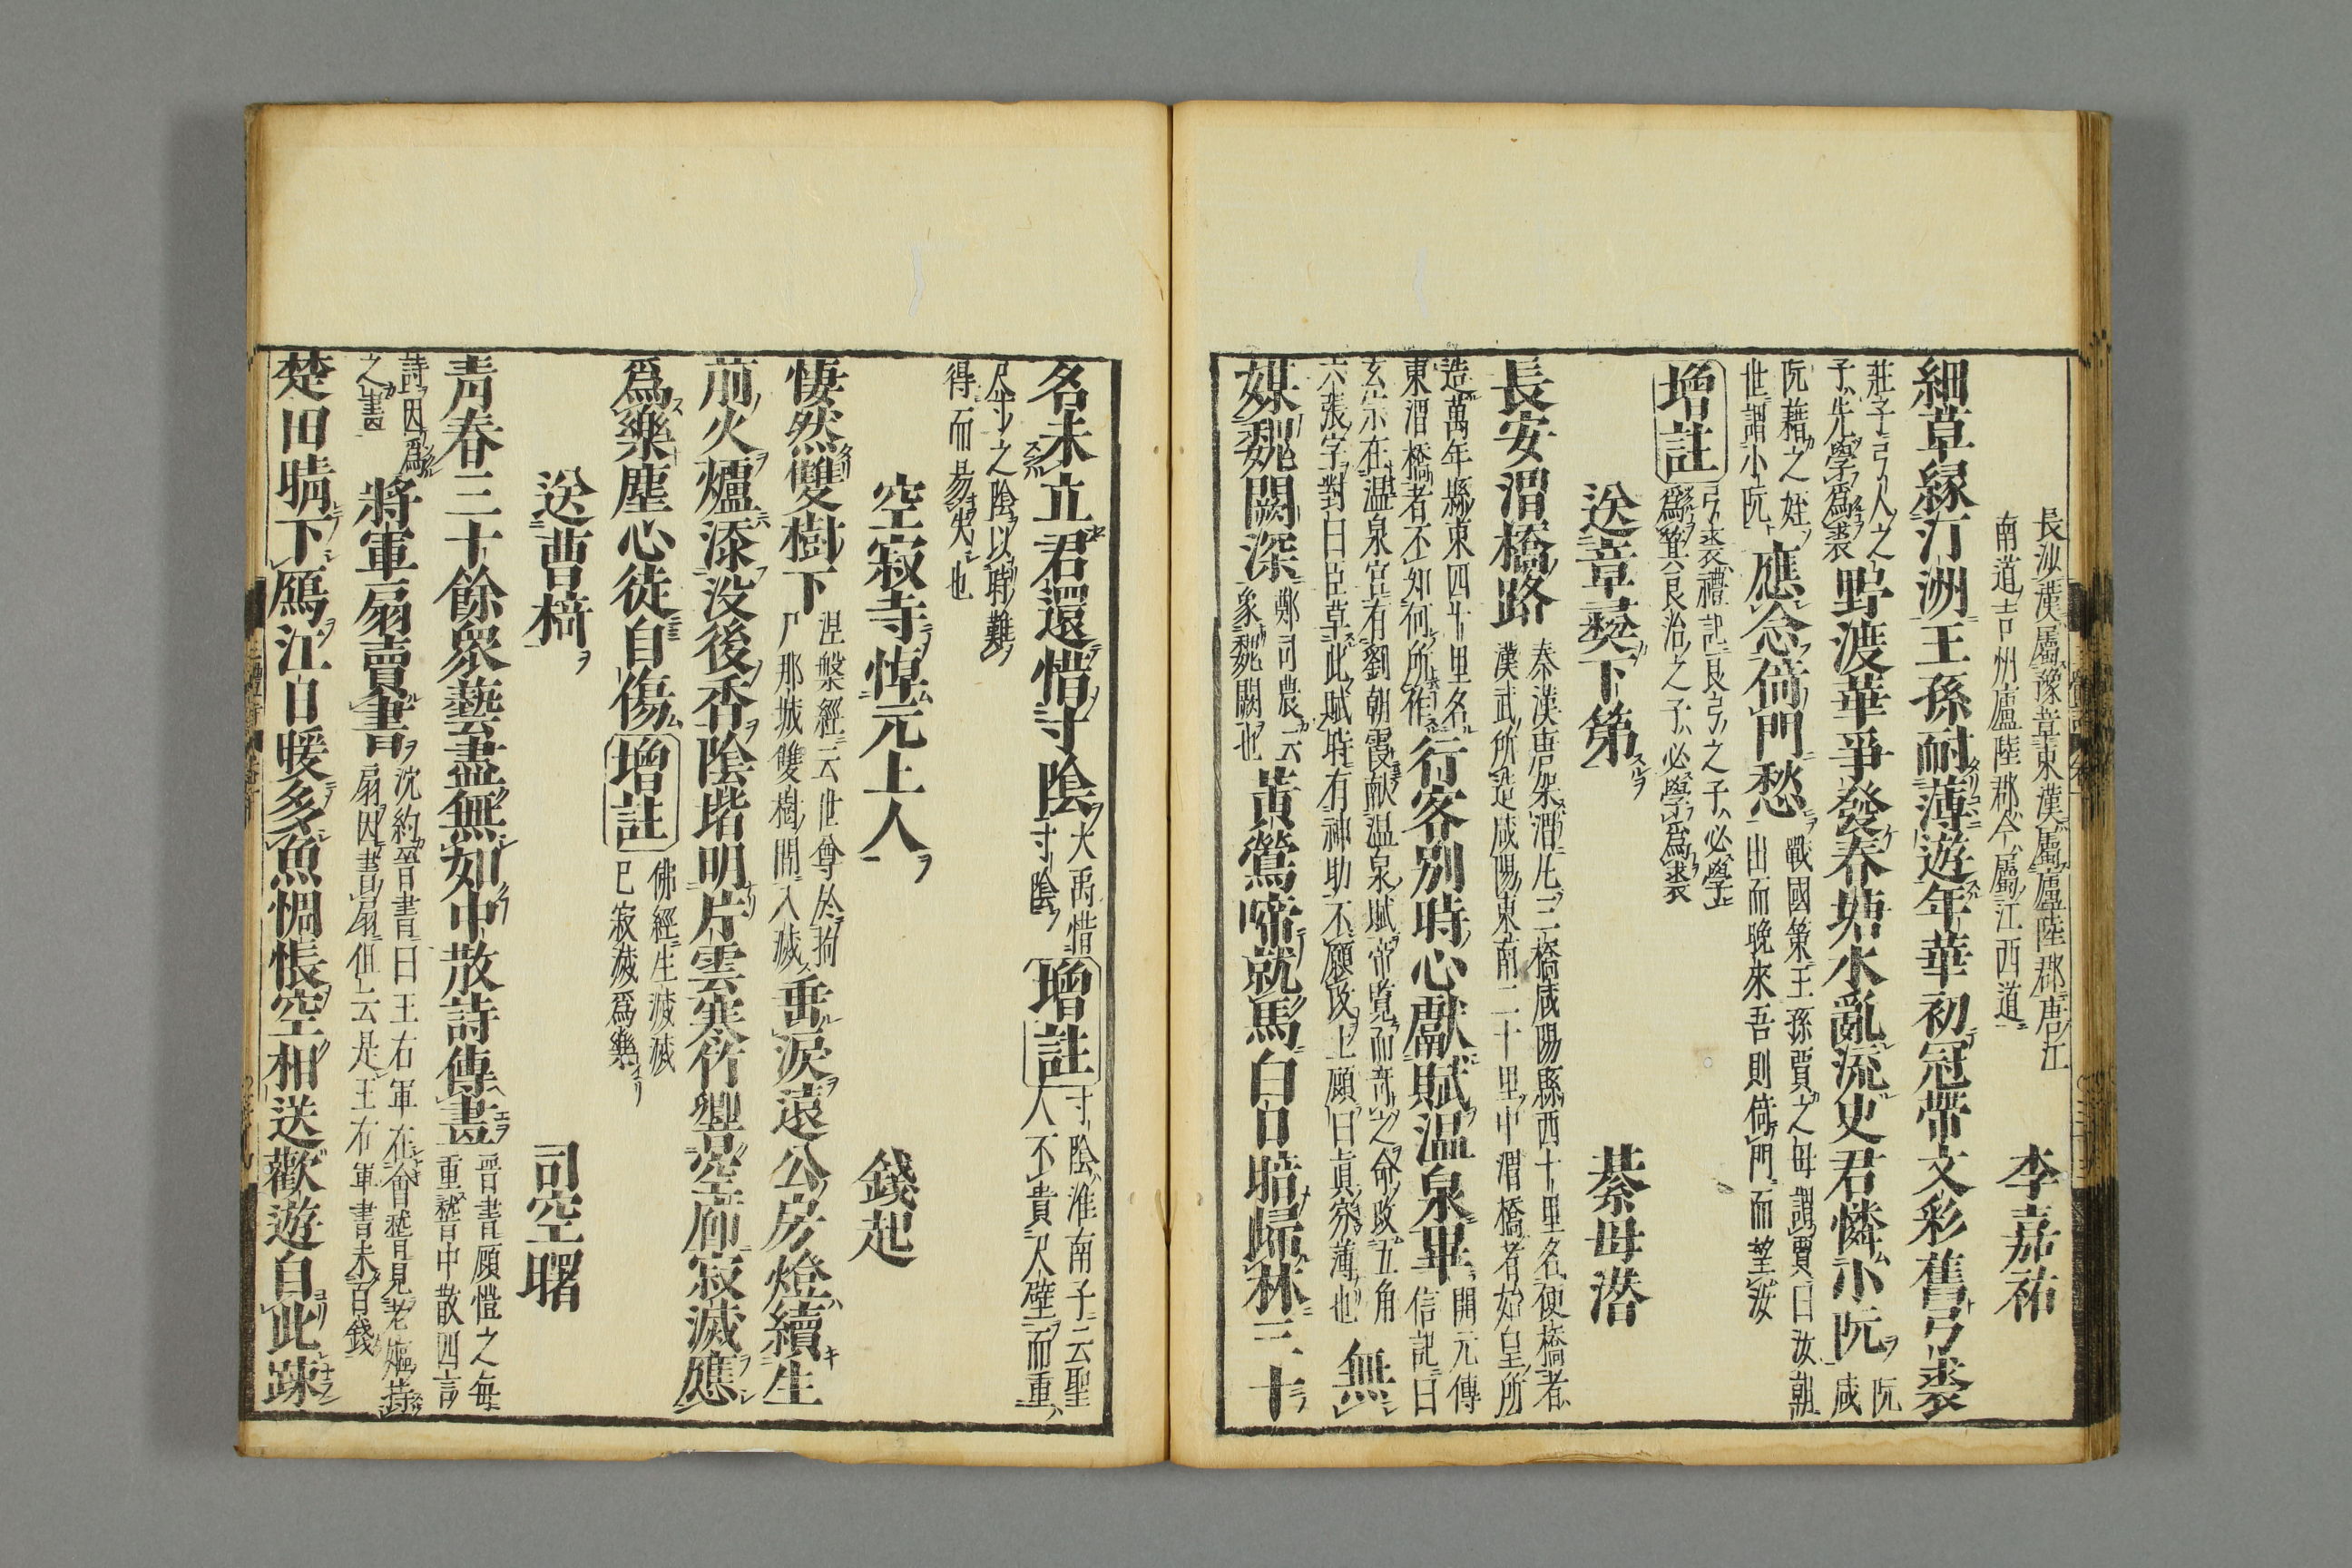 長沙漢屬豫章東漢屬廬陵郡唐江
南道吉州廬陵郡今屬江西道
李嘉祐
細草緑汀洲王孫耐薄遊年華初冠帶文彩舊弓裘
莊子弓人之
子先學爲裘
野渡華爭發春塘水亂流史君憐小阮
阮咸
阮藉之姪
世謂小阮
應念倚門愁
戰國策王孫賈之母謂賈曰汝朝
出而晚來吾則倚門而望汝
增註
弓裘禮記良弓之子必學
爲箕良冶之子必學爲裘
送章彝下第
綦母潜
長安渭橋路
秦漢唐架渭凡三橋咸陽縣西十里名便橋者
漢武所造咸陽東南二十里中渭橋者始皇所
造萬年縣東四十里名
東渭橋者不知何所作
行客別時心獻賦温泉畢
開元傳
信記曰
玄宗在温泉宮有劉朝霞献温泉賦帝覽而奇之命改五角
六張字對曰臣草此賦時有神助不願改上顧曰眞窮薄也
無
媒魏闕深
鄭司農云
象魏闕也
黄鶯啼就馬白日暗歸林三十
名未立君還惜寸陰
大禹惜
寸陰
增註
寸陰淮南子云聖
人不貴尺壁而重
尺寸之陰以時難
得而易失也
空寂寺悼元上人
錢起
悽然雙樹下
涅槃經云世尊於拘
尸那城雙樹間入滅
垂淚遠公房燈續生
前火爐添没後香陰堦明片雲寒竹響空廊寂滅應
爲樂塵心徒自傷
增註
佛經生滅滅
已寂滅爲樂
送曹椅
司空曙
青春三十餘衆藝盡無如中散詩傳畫
晋書顧愷之每
重嵆中散四言
詩因爲
之畫
將軍扇賣書
沈約晋書曰王右軍在會嵆見老嫗持
扇因書扇但云是王右軍書末百錢
楚田晴下鴈江日暖多魚惆悵空相送歡遊自此踈